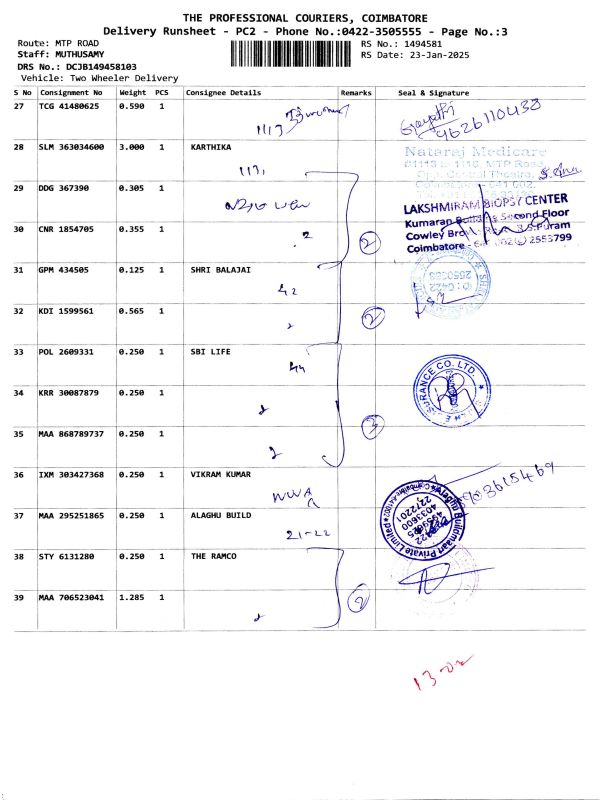 THE PROFESSIONAL COURIERS, COIMBATORE
Delivery Runsheet - PC2 - Phone No.:0422-3505555 - Page No.:3
Route: MTP ROAD RS No.: 1494581
Staff: MUTHUSAMY RS Date: 23-Jan-2025
DRS No.: DCJB149458103
Vehicle: Two Wheeler Delivery
S No Consignment No Weight PCS Consignee Details Remarks Seal & Signature
27 TCG 41480625 0.590 1
1113
9626110438
28 SLM 363034600 3.000 1 KARTHIKA
Nataraj Medicare
MTP Road
29 DDG 367390 0.305 1
LAKSHMIRAM BIOPSY CENTER
Second Floor
30 CNR 1854705 0.355 1
Cowley
Coimbatore
2 2
31 GPM 434505 0.125 1 SHRI BALAJAI
42
32 KDI 1599561 0.565 1
2 2
33 POL 2609331 0.250 1 SBI LIFE
44
34 KRR 30087879 0.250 1
2
35 MAA 868789737 0.250 1
2 3
36 IXM 303427368 0.250 1 VIKRAM KUMAR
37 MAA 295251865 0.250 1 ALAGHU BUILD
21-22
38 STY 6131280 0.250 1 THE RAMCO
39 MAA 706523041 1.285 1
2 2